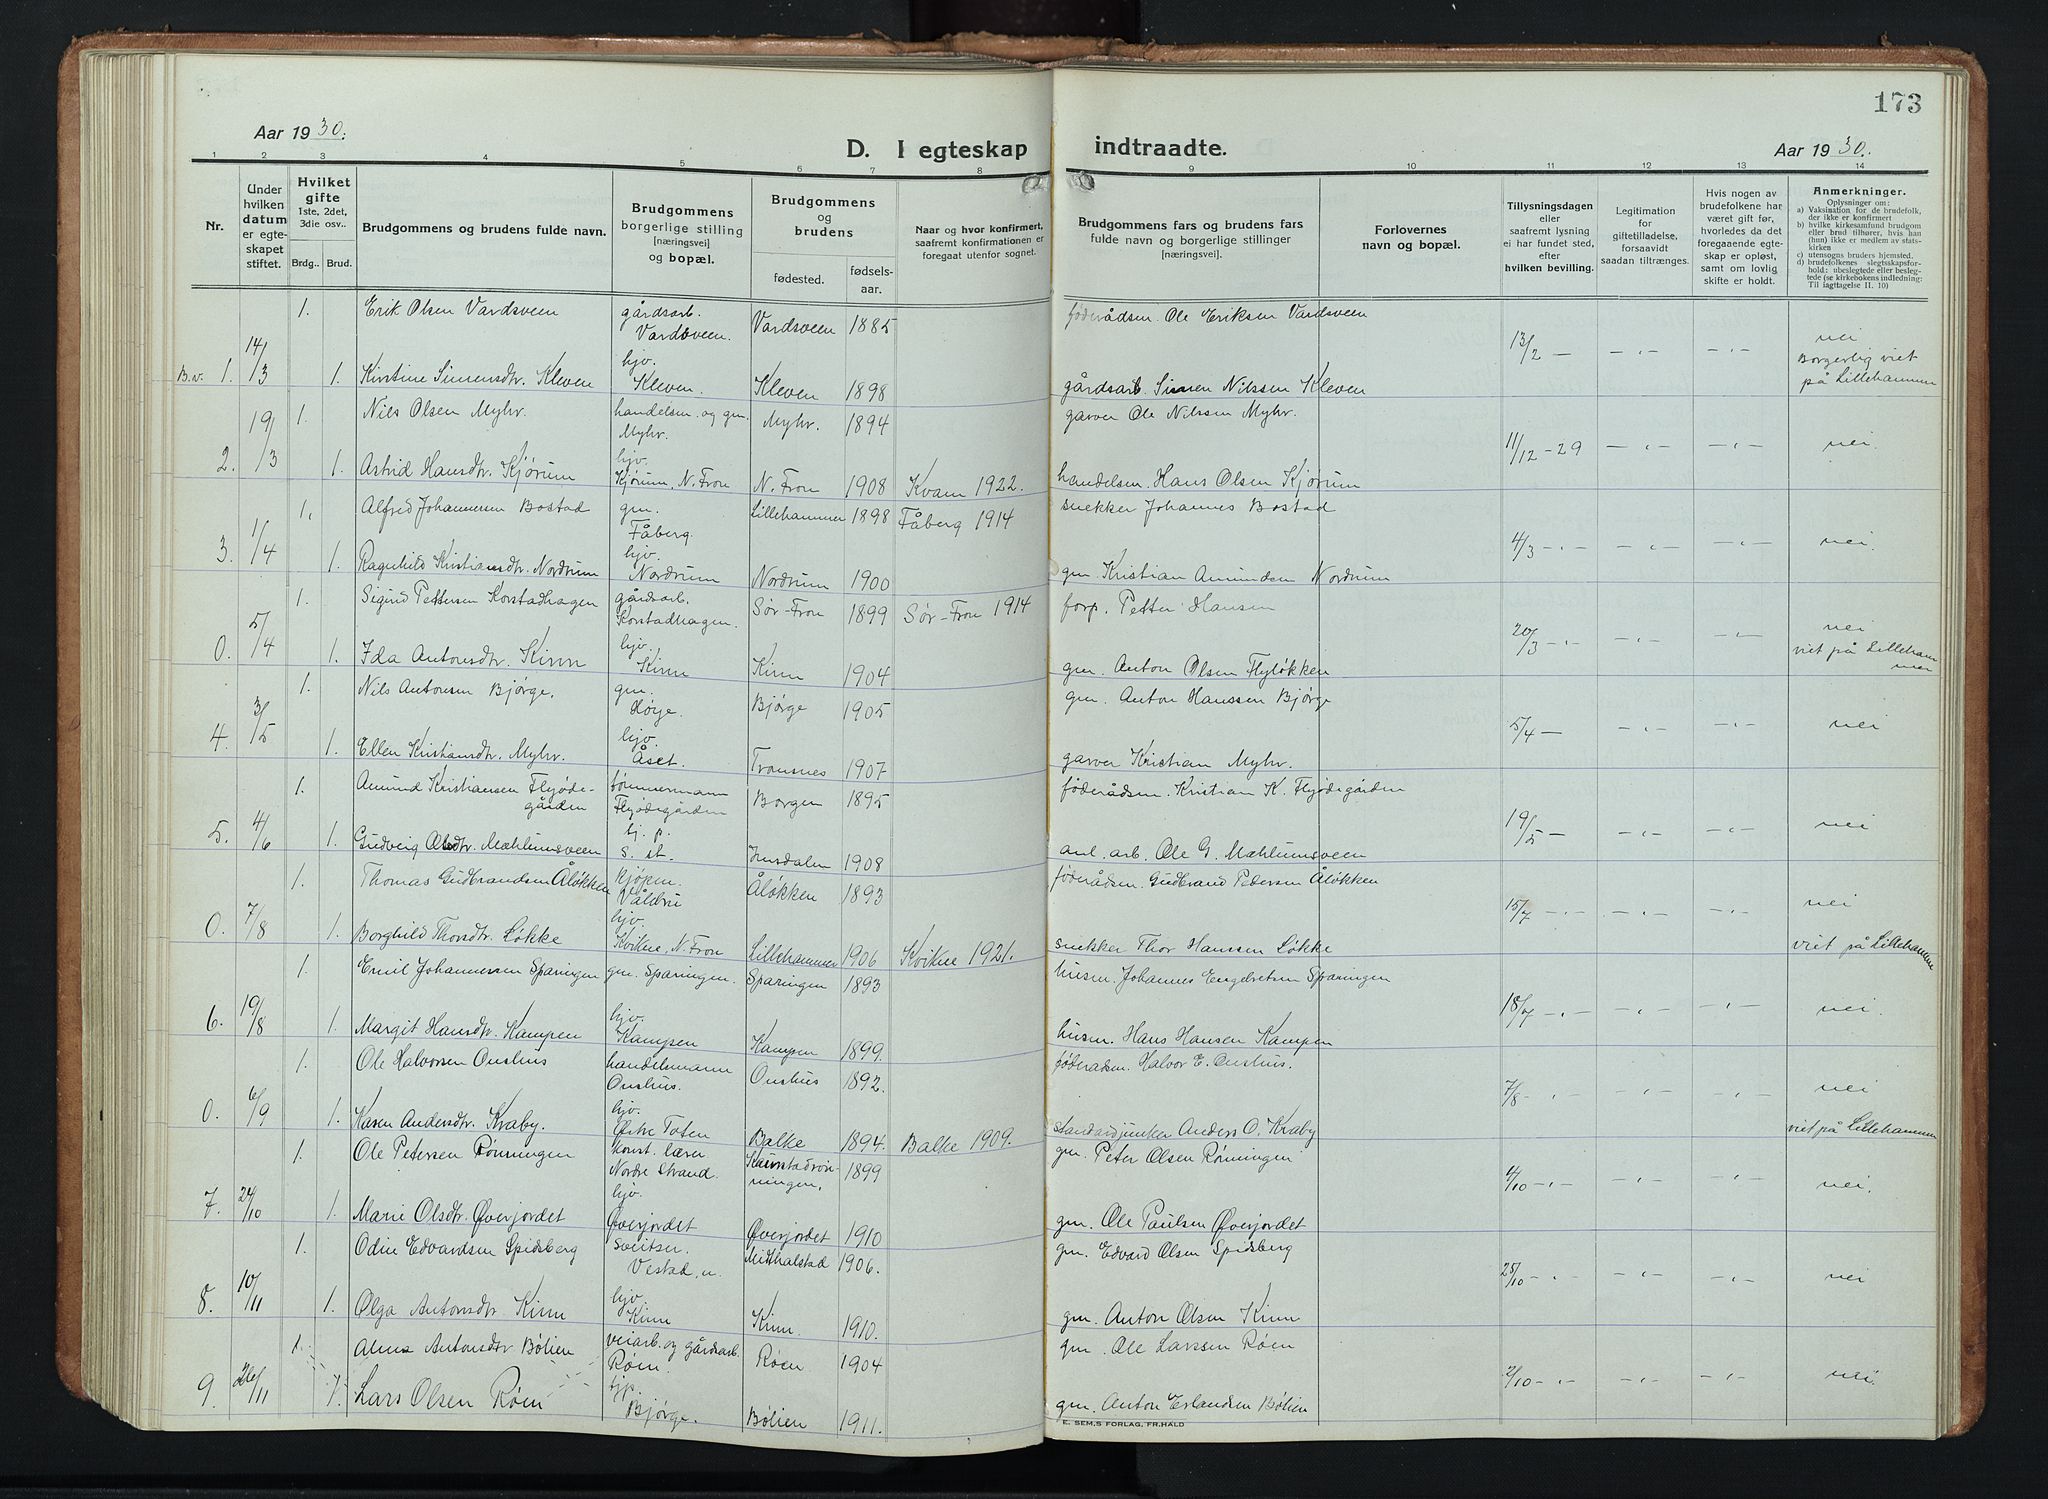 173
Aar 1930.
D. I egteskap indtraadte.
Aar 1930.
1 2 3 4 5 6 7 8 9 10 11 12 13 14
Nr.
Under hvilken datum er egteskapet stiftet.
Hvilket gifte 1ste, 2det, 3die osv..
Brdg.. Brud.
Brudgommens og brudens fulde navn.
Brudgommens borgerlige stilling [næringsvei] og bopæl.
Brudgommens og brudens
fødested. fødsels-aar.
Naar og hvor konfirmert, saafremt konfirmationen er foregaat utenfor sognet.
Brudgommens fars og brudens fars fulde navn og borgerlige stillinger [næringsvei].
Forlovernes navn og bopæl.
Tillysningsdagen eller saafremt lysning ei har fundet sted, efter hvilken bevilling.
Legitimation for giftetilladelse, forsaavidt saadan tiltrænges.
Hvis nogen av brudefolkene har været gift før, hvorledes da det foregaaende egteskap er opløst, samt om lovlig skifte er holdt.
Anmerkninger.
Oplysninger om:
a) Vaksination for de brudefolk, der ikke er konfirmert
b) hvilke kirkesamfund brudgom eller brud tilhører, hvis han (hun) ikke er medlem av statskirken
c) utensogns bruders hjemsted.
d) brudefolkenes slegtsskapsforhold: ubeslegtede eller beslegtede (se kirkebokens indledning: Til iagttagelse II. 10)
1. Erik Olsen Vardsveen gårdsarb. Vardsveen. Vardsveen 1885 føderådsm. Ole Eriksen Vardsveen
B.v. 1. 14/3 13/2 – -"- -"- nei Borgerlig viet på Lillehammer
1. Kirstine Simensdtr. Kleven hjv. Kleven. Kleven 1898 gårdsarb. Simen Nilssen Kleven
1. Nils Olsen Myhr. handelsm. og gm. Myhr. Myhr. 1894 garver Ole Nilssen Myhr.
2. 19/3 11/12 - 29 -"- -"- nei.
1. Astrid Hansdtr. Kjørum hjv. Kjørum, N. Fron N. Fron 1908 Kvam 1922. handelsm. Hans Olsen Kjørum
1. Alfred Johannessen Bostad gm. Fåberg. Lillehammer 1898 Fåberg 1914 snekker Johannes Bostad
3. 1/4 4/3 -"- -"- -"- nei.
1. Ragnhild Kristiansdtr. Nordrum hjv. Nordrum Nordrum 1900 gm. Kristian Amundsen Nordrum
1. Sigurd Pettersen Korstadhagen gårdsarb. Korstadhagen. Sør-Fron 1899 Sør-Fron 1914 forp. Petter Hansen
0. 5/4 20/3 -"- -"- -"- nei viet på Lillehammer
1. Ida Antonsdtr. Kinn hjv. Kinn Kinn 1904 gm. Anton Olsen Flyløkken
1. Nils Antonsen Bjørge. gm. Høye. Bjørge 1905 gm. Anton Hanssen Bjørge
4. 3/5 5/4 – -"- -"- nei
1. Ellen Kristiansdtr. Myhr. hjv. Åset. Tromsnes 1907 garver Kristian Myhr.
1. Amund Kristiansen Flyødegården tømmermann Flyødegården Borgen 1895 føderådsm. Kristian K. Flyødegården
5. 4/6 19/5 – -"- -"- nei
1. Gudveig Olsdtr. Mæhlumsveen hj. p. s. st. Imsdalen 1908 anl. arb. Ole G. Mæhlumsveen
1. Thomas Gudbrandsen Åløkken kjøpm. Våldri Åløkken 1893 føderådsm. Gudbrand Pedersen Åløkken
0. 7/8 15/7 -"- -"- -"- nei viet på Lillehammer
1. Borghild Thorsdtr. Løkke hjv. Kvikne, N. Fron Lillehammer 1906 Kvikne 1921. snekker Thor Hanssen Løkke
1. Emil Johannessen Sparingen gm. Sparingen. Sparingen 1893 husm. Johannes Engebretsen Sparingen
6. 19/8 18/7 -"- -"- -"- nei.
1. Margit Hansdtr. Kampen hjv. Kampen Kampen 1899. husm. Hans Hansen Kampen
1. Ole Halvorsen Onshus handelsmann Onshus. Onshus 1892. føderådsm. Halvor E. Onshus.
0. 6/9 7/8 -"- -"- -"- nei viet på Lillehammer
1. Karen Andersdtr. Kraby. hjv. Østre Toten Balke 1894. Balke 1909. standardjunker Anders O. Kraby
1. Ole Petersen Rønningen konst. lærer Nordre Strand. 1899 gm. Peter Olsen Rønningen
7. 24/10 4/10 -"- -"- -"- nei.
1. Marie Olsdtr. Øverjordet hjv. Øverjordet Øverjordet 1910 gm. Ole Paulsen Øverjordet
1. Odin Edvardsen Spidsberg sveitser. Vestad, u. Midthalstad 1906. gm. Edvard Olsen Spidsberg
8. 10/11 25/10 -"- -"- -"- nei
1. Olga Antonsdtr. Kinn hjv. Kinn Kinn. 1910. gm. Anton Olsen Kinn
1. Alma Antonsdtr Bølien veiarb. og gårdsarb. Røen. Røen. 1904 gm. Ole Larssen Røen
9. 26/11 2/10 -"- -"- -"- nei.
1. Lars Olsen Røen tjp. Bjørge. Bølien 1911. gm. Anton Erlandsen Bølien
E. SEM,S FORLAG, FR.HALD